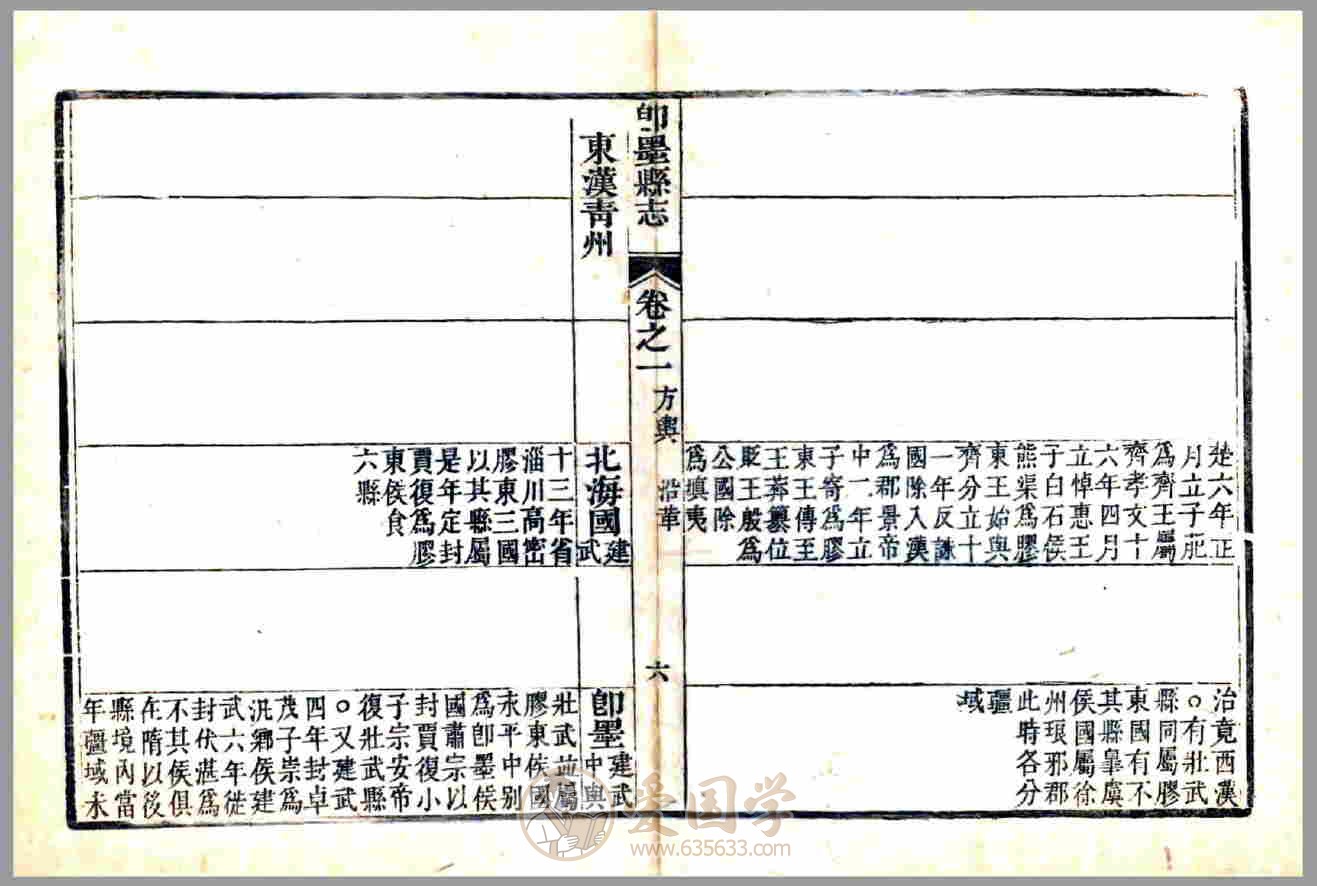 楚六年正
月立子肥
爲齊王屬
齊孝文十
六年四月
立悼惠王
子白石侯
熊渠爲膠
東王始與
齊分立十
一年反誅
國除入漢
爲郡景帝
中二年立
子寄爲膠
東王傳至
王莽纂位
貶王殷爲
公國除
爲填夷
治竟西漢
○有壯武
縣同屬膠
東國有不
其縣臯虞
侯國屬徐
州琅邪郡
此時各分
疆
域
卽墨縣志
卷之一
方輿
沿革
六
東漢青州
北海國建武
十三年省
淄川高密
膠東三國
以其縣屬
是年定封
賈復爲膠
東侯食
六縣
卽墨建武中興
壯武並屬
膠東侯國
永平中別
爲卽墨侯
國肅宗以
封賈復小
子宗安帝
復壯武縣
○又建武
四年封卓
茂子崇爲
汎鄉侯建
武六年徙
封伏湛爲
不其侯俱
在隋以後
縣境內當
年疆域未
爱国学
www.635633.com